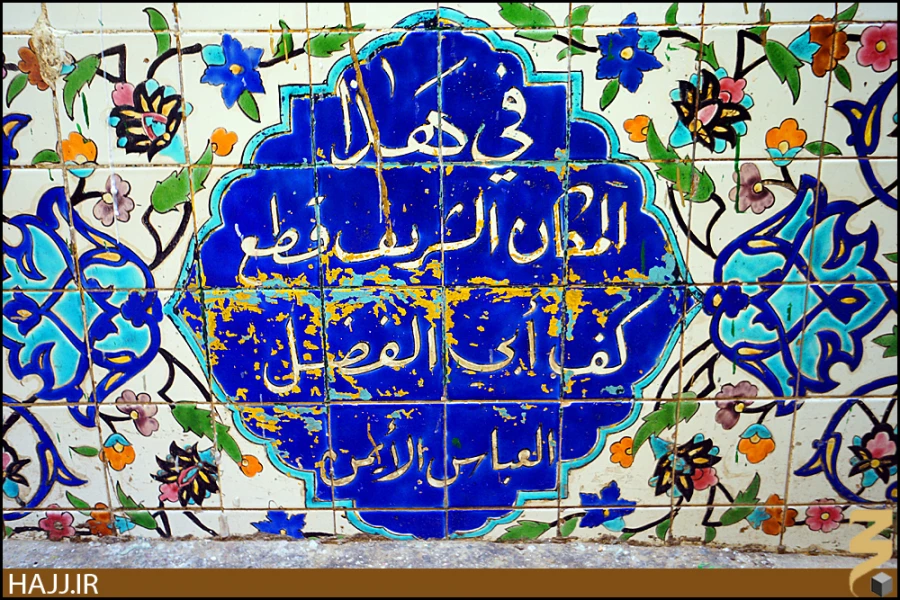 في هذا
المكان الشريف قطع
كف أبى الفضل
العباس الأيمن
HAJJ.IR